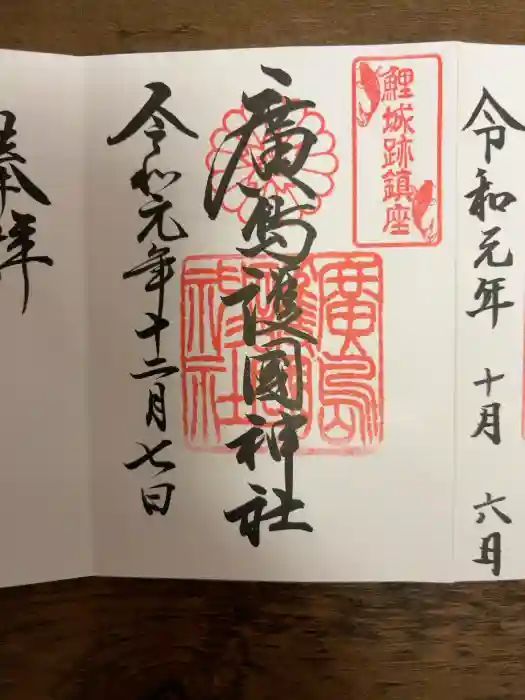 令和元年 十月 六日
鯉城跡鎮座
廣島護國神社
廣島護國神社
令和元年十二月七日
奉拝